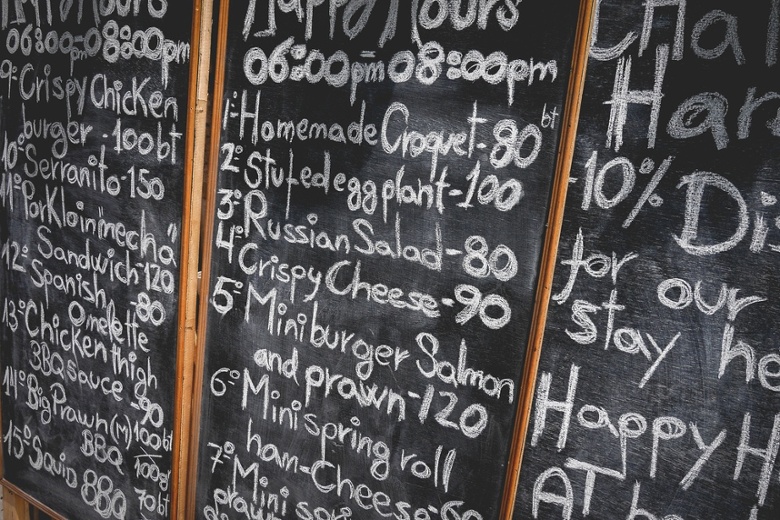 06:00pm-08:00pm
9º Crispy Chicken
burger -100bt
10º Serranito-150
11º Porkloin "mecha"
Sandwich-120
12º Spanish -80
Omelette
13º Chicken thigh
BBQ sauce -90
14º Big Prawn (M) 100bt
BBQ 100g
15º Squid BBQ 70bt
Happy Hours
06:00pm 08:00pm
1º Homemade Croquet-80 bt
2º Stufed eggplant-100
3º Russian Salad-80
4º Crispy Cheese-90
5º Mini burger Salmon
and prawn-120
6º Mini spring roll
ham-Cheese-60
7º Mini spr
prawn
Har
-10% Dis
for our
stay he
Happy H
AT